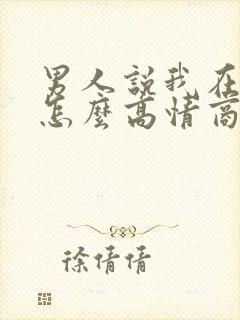 男人說我在
怎麼高情商
徐倩倩